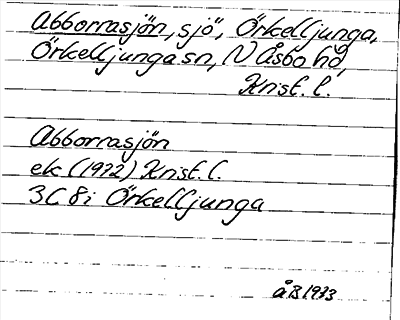 Abborrasjön, sjö, Örkelljunga,
Örkelljunga sn, N Åsbo hd,
Knist. l.
Abborrasjön
ek (1972) Knist. l.
3C 8i Örkelljunga
ÅB 1973